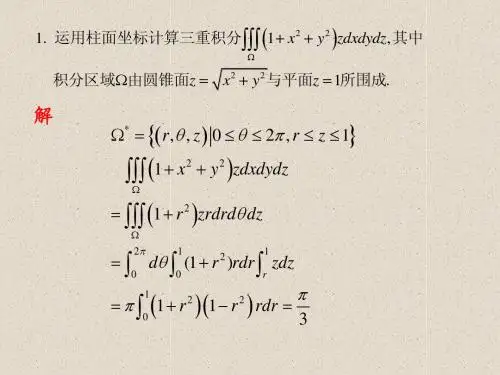 1. 运用柱面坐标计算三重积分∭_Ω(1+x²+y²)zdxdydz,其中
积分区域Ω由圆锥面z=√(x²+y²)与平面z=1所围成.
解
Ω*={(r,θ,z)|0≤θ≤2π,r≤z≤1}
∭_Ω(1+x²+y²)zdxdydz
=∭_Ω(1+r²)zrdrdθdz
=∫_0^{2π}dθ∫_0^1(1+r²)rdr∫_r^1zdz
=π∫_0^1(1+r²)(1−r²)rdr=π/3